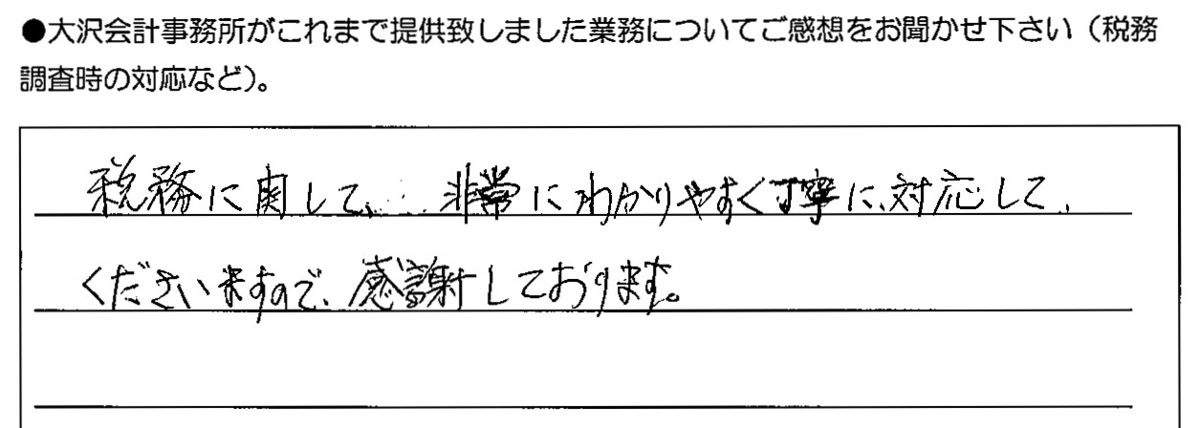 ●大沢会計事務所がこれまで提供致しました業務についてご感想をお聞かせ下さい（税務
調査時の対応など）。
税務に関して、非常にわかりやすく丁寧に対応して
くださいますので、感謝しております。